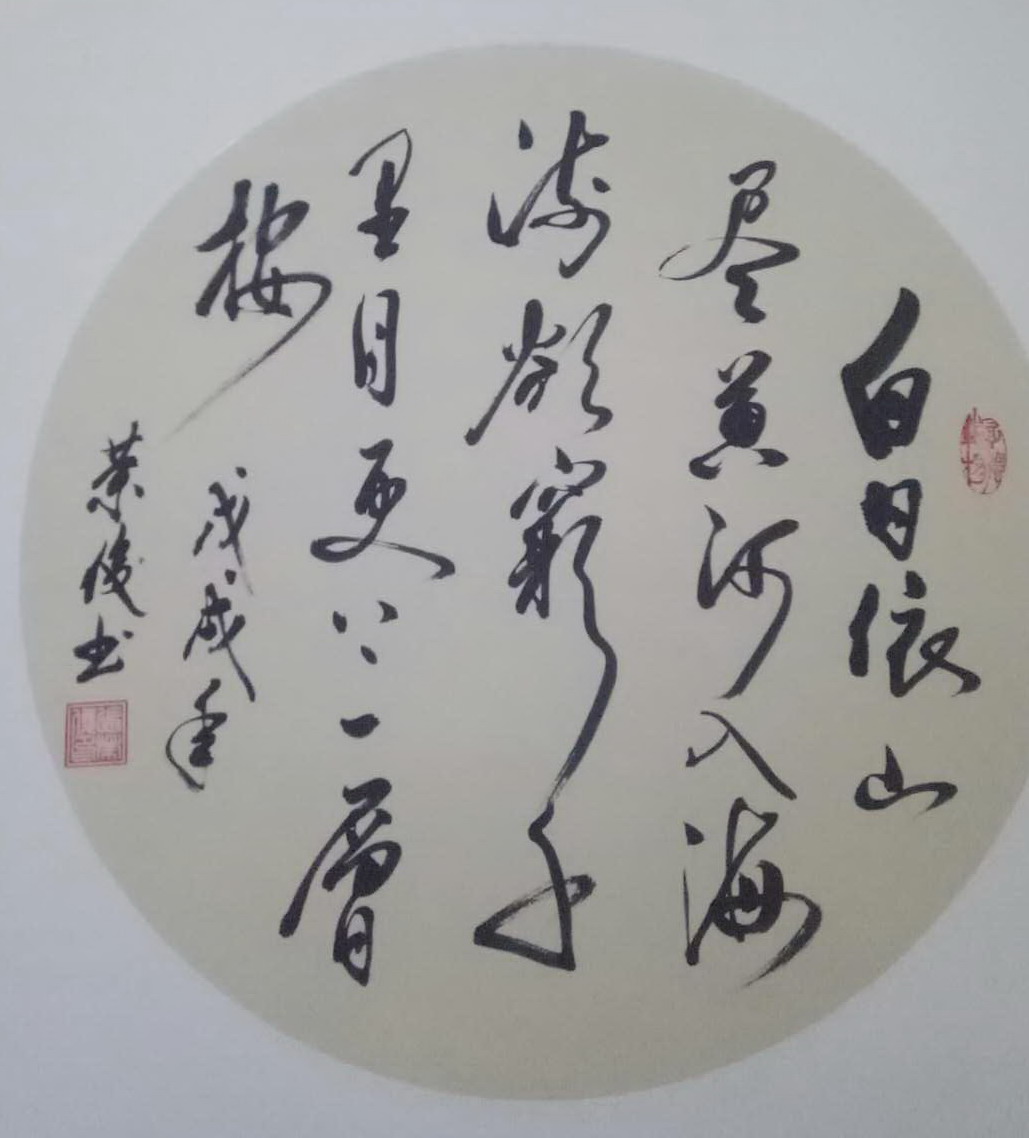 白日依山
尽黄河入海
流欲窮千
里目更上一層
楼
戊戌年
荣俊书